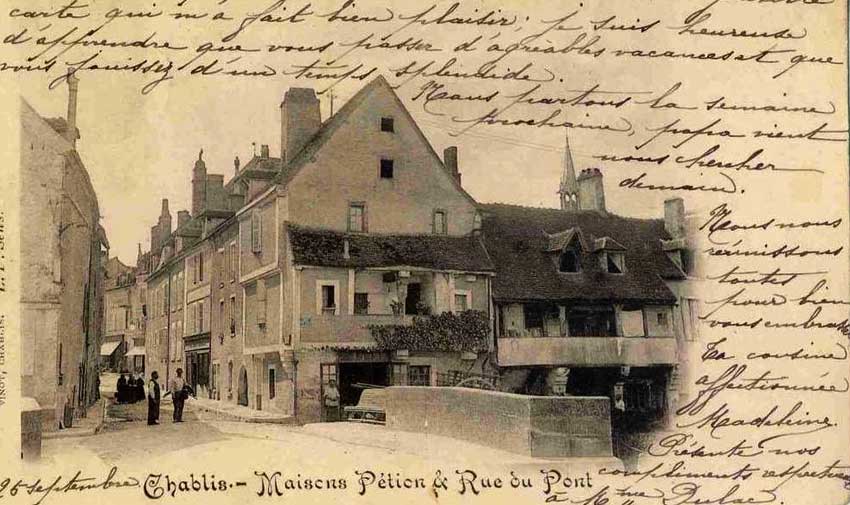 carte qui m'a fait bien plaisir; je suis heureuse
d'apprendre que vous passez d'agréables vacances et que
vous jouissez d'un temps splendide.
Nous partons la semaine
prochaine, papa vient
nous chercher
demain.
Nous nous
réunissons
toutes
pour bien
vous embras
Ta cousine
affectionnée
Madeleine.
Présente nos
compliments respectueux
à Mme Dulac.
25 septembre
Chablis.- Maisons Pétion & Rue du Pont